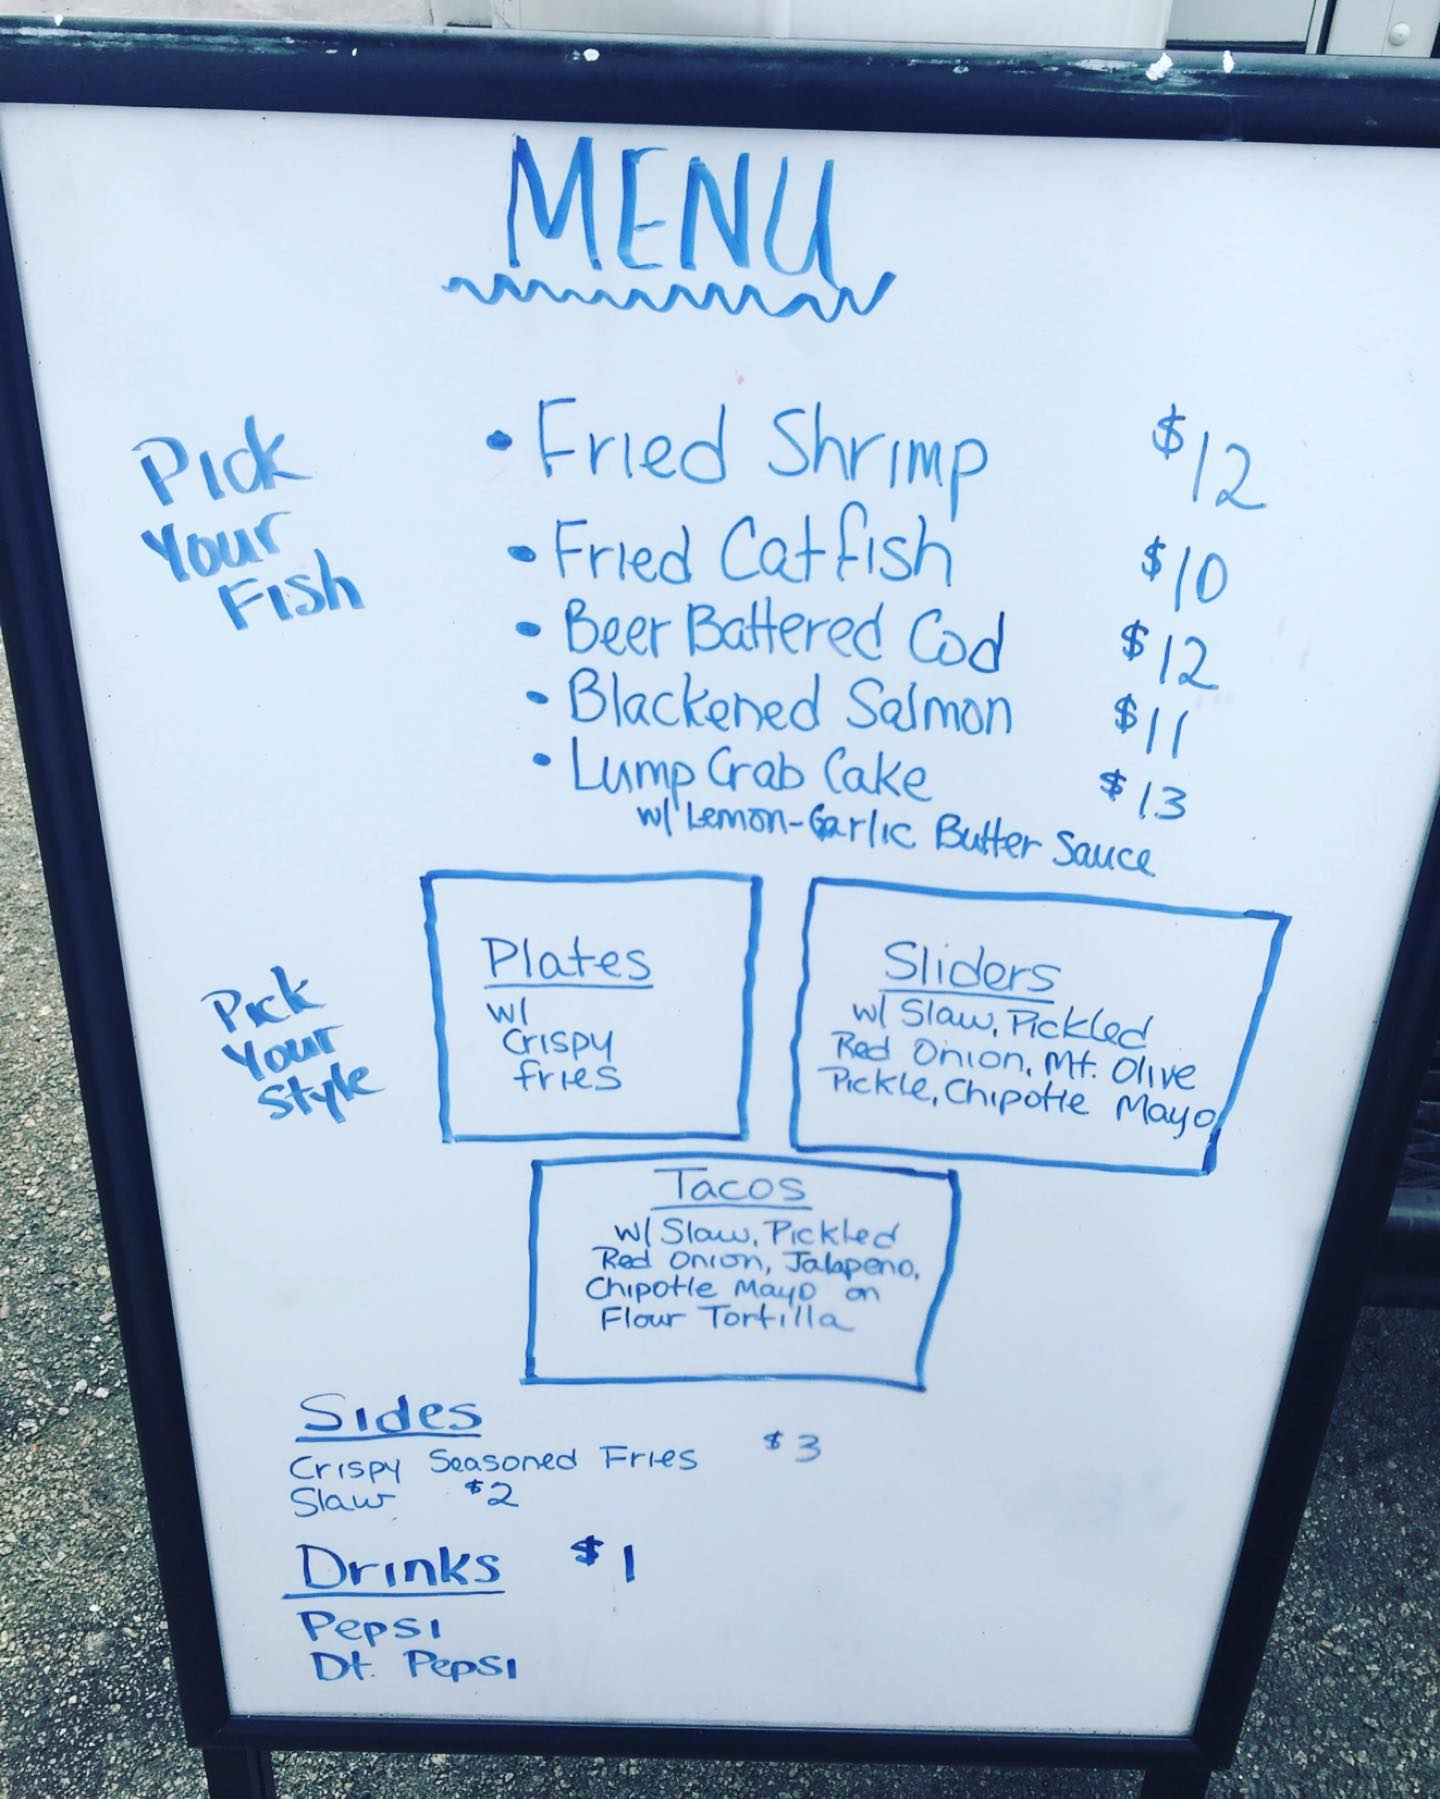 MENU
Pick
Your
Fish
• Fried Shrimp $12
• Fried Catfish $10
• Beer Battered Cod $12
• Blackened Salmon $11
• Lump Crab Cake $13
w/ Lemon-Garlic Butter Sauce
Pick
Your
Style
Plates
w/
Crispy
fries
Sliders
w/ Slaw, Pickled
Red Onion, Mt. Olive
Pickle, Chipotle Mayo
Tacos
w/ Slaw, Pickled
Red Onion, Jalapeno,
Chipotle Mayo on
Flour Tortilla
Sides
Crispy Seasoned Fries $3
Slaw $2
Drinks $1
Pepsi
Dt. Pepsi